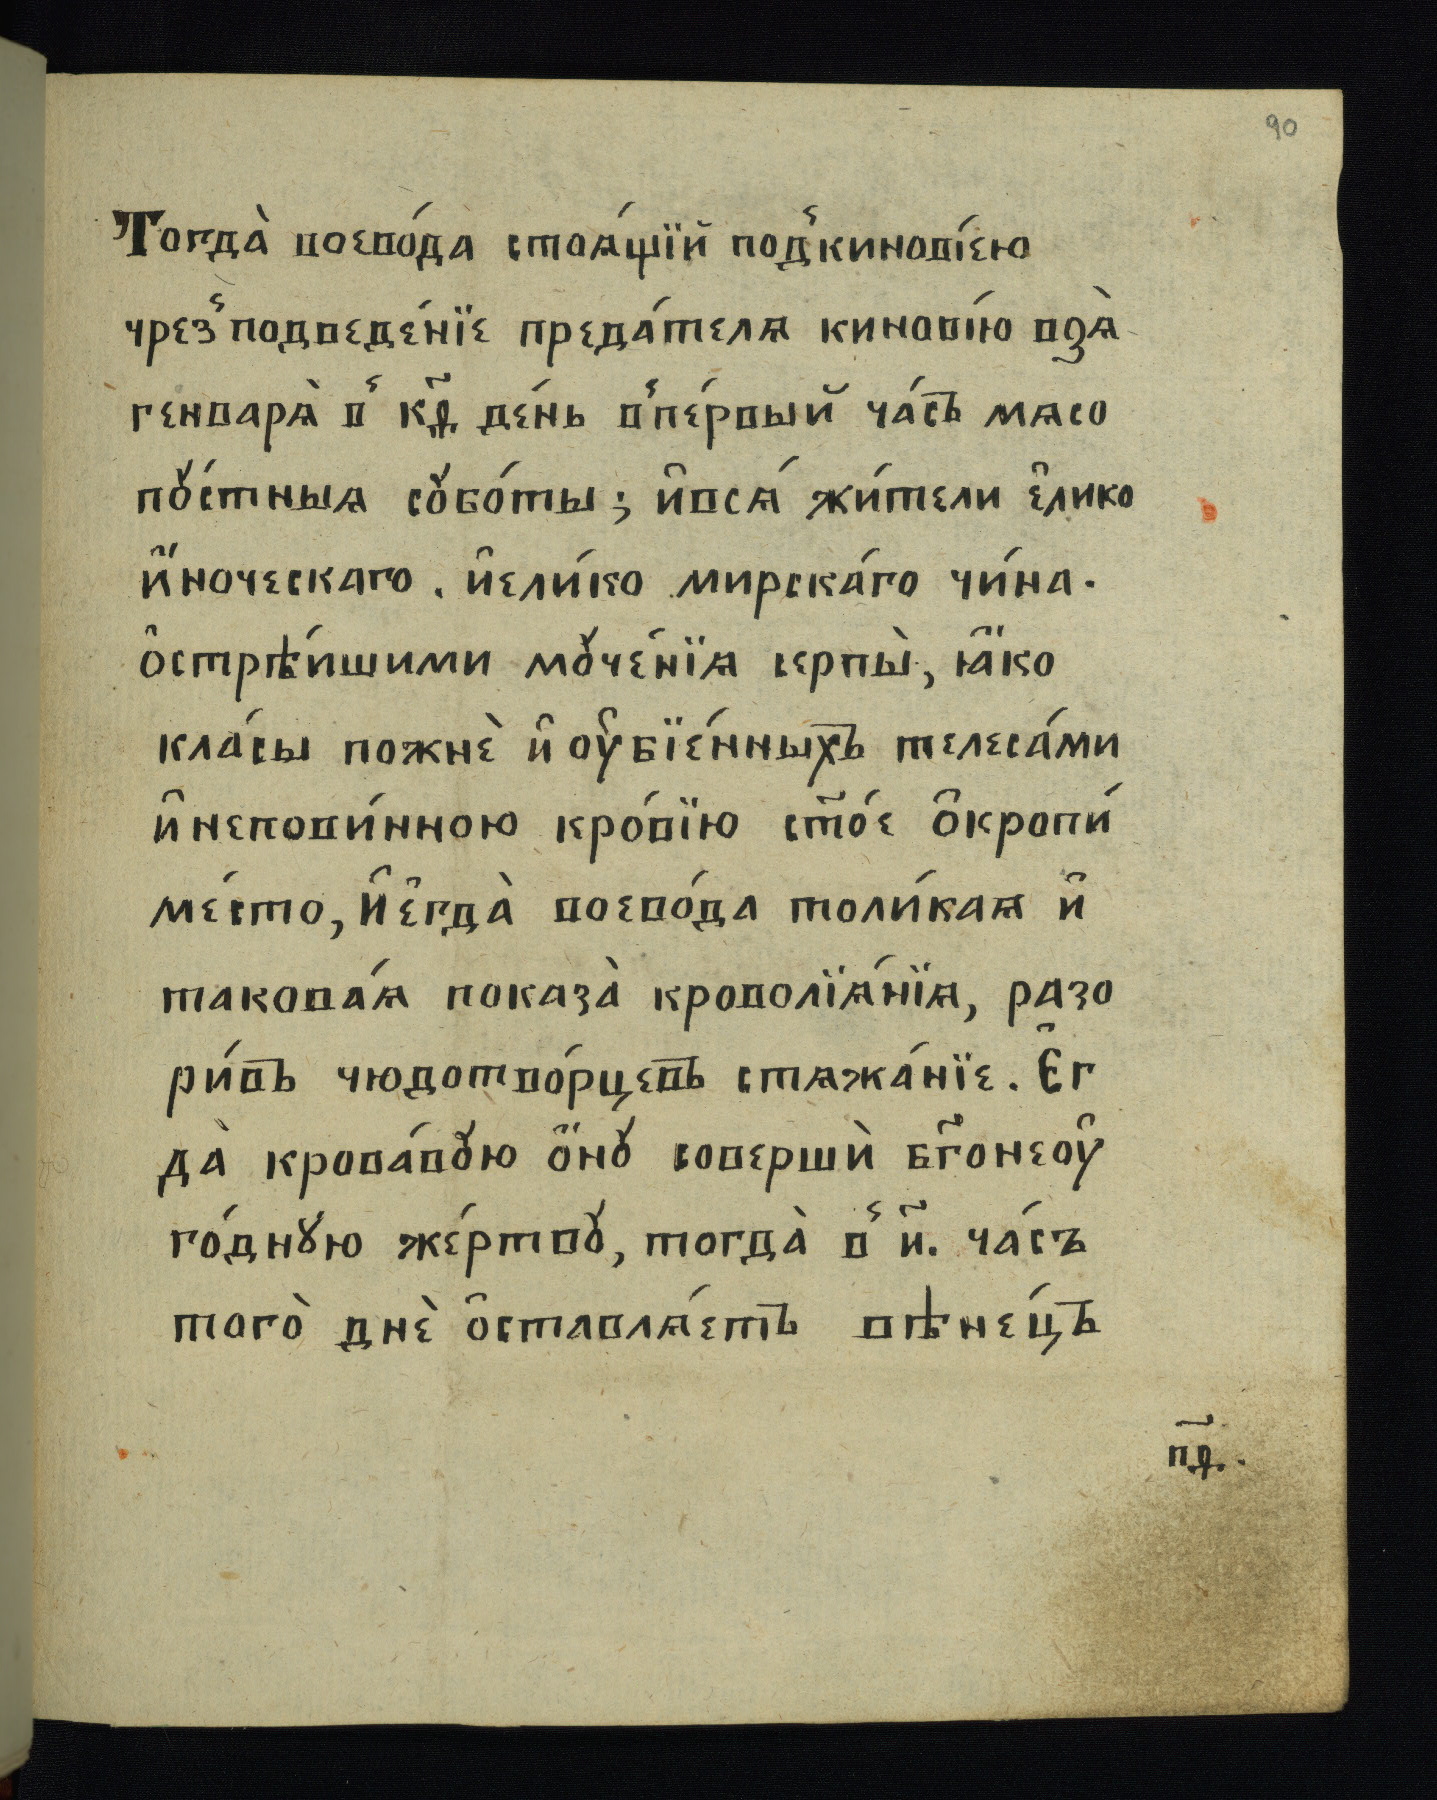 90
Тогда̀ воево́да стоѧ́щїй под̾кинові́єю
чрез̾подведе́нїе преда́телѧ кинові́ю взѧ̀
генварѧ̀ в̾ к҃д де́нь в̾пе́рвый ча́съ мѧсо
пꙋ́стныѧ сꙋбо́ты; и҆всѧ́ жи́тели є҆лико
и҆́ноческаго. и҆ели́ко мирска́го чи́на.
ѻ҆стрѣ́ишими мꙋче́нїѧ серпы̀, ꙗ҆́ко
кла́сы пожнѐ и҆ оу҆бїе́нныхъ телеса́ми
и҆неповинною кро́вїю ст҃о́е ѻ҆кропи́
ме́сто, и҆є҆гда̀ воево́да толи́каѧ и҆
таковаѧ́ показа̀ кроволїѧ́нїѧ, разо
ри́въ чюдотво́рцевъ стѧжа́нїе. Є҆г
да̀ крова́вꙋю ѻ҆́нꙋ совершѝ бг҃онеоу҆
го́днꙋю же́ртвꙋ, тогда̀ в̾ и҃. ча́съ
того̀ днѐ ѻ҆ставлѧ́етъ вѣне́цъ
п҃д.